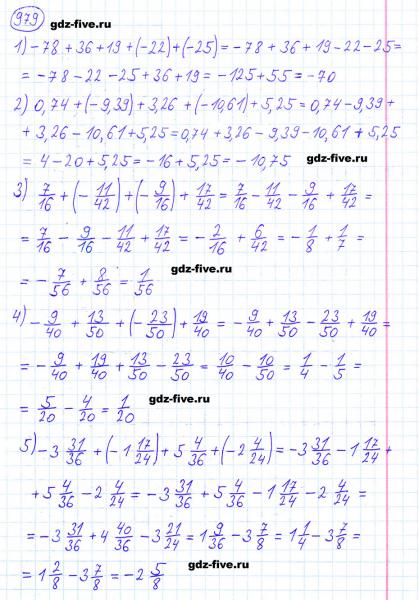 979 gdz-five.ru
1) -78 + 36 + 19 + (-22) + (-25) = -78 + 36 + 19 - 22 - 25 =
= -78 - 22 - 25 + 36 + 19 = -125 + 55 = -70
2) 0,74 + (-9,39) + 3,26 + (-10,61) + 5,25 = 0,74 - 9,39 +
+ 3,26 - 10,61 + 5,25 = 0,74 + 3,26 - 9,39 - 10,61 + 5,25
= 4 - 20 + 5,25 = -16 + 5,25 = -10,75
gdz-five.ru
3) 7/16 + (-11/42) + (-9/16) + 17/42 = 7/16 - 11/42 - 9/16 + 17/42 =
= 7/16 - 9/16 - 11/42 + 17/42 = -2/16 + 6/42 = -1/8 + 1/7 =
= -7/56 + 8/56 = 1/56 gdz-five.ru
4) -9/40 + 13/50 + (-23/50) + 19/40 = -9/40 + 13/50 - 23/50 + 19/40 =
= -9/40 + 19/40 + 13/50 - 23/50 = 10/40 - 10/50 = 1/4 - 1/5 =
= 5/20 - 4/20 = 1/20 gdz-five.ru
5) -3 31/36 + (-1 17/24) + 5 4/36 + (-2 4/24) = -3 31/36 - 1 17/24 +
+ 5 4/36 - 2 4/24 = -3 31/36 + 5 4/36 - 1 17/24 - 2 4/24 =
= -3 31/36 + 4 40/36 - 3 21/24 = 1 9/36 - 3 7/8 = 1 1/4 - 3 7/8 =
= 1 2/8 - 3 7/8 = -2 5/8
gdz-five.ru